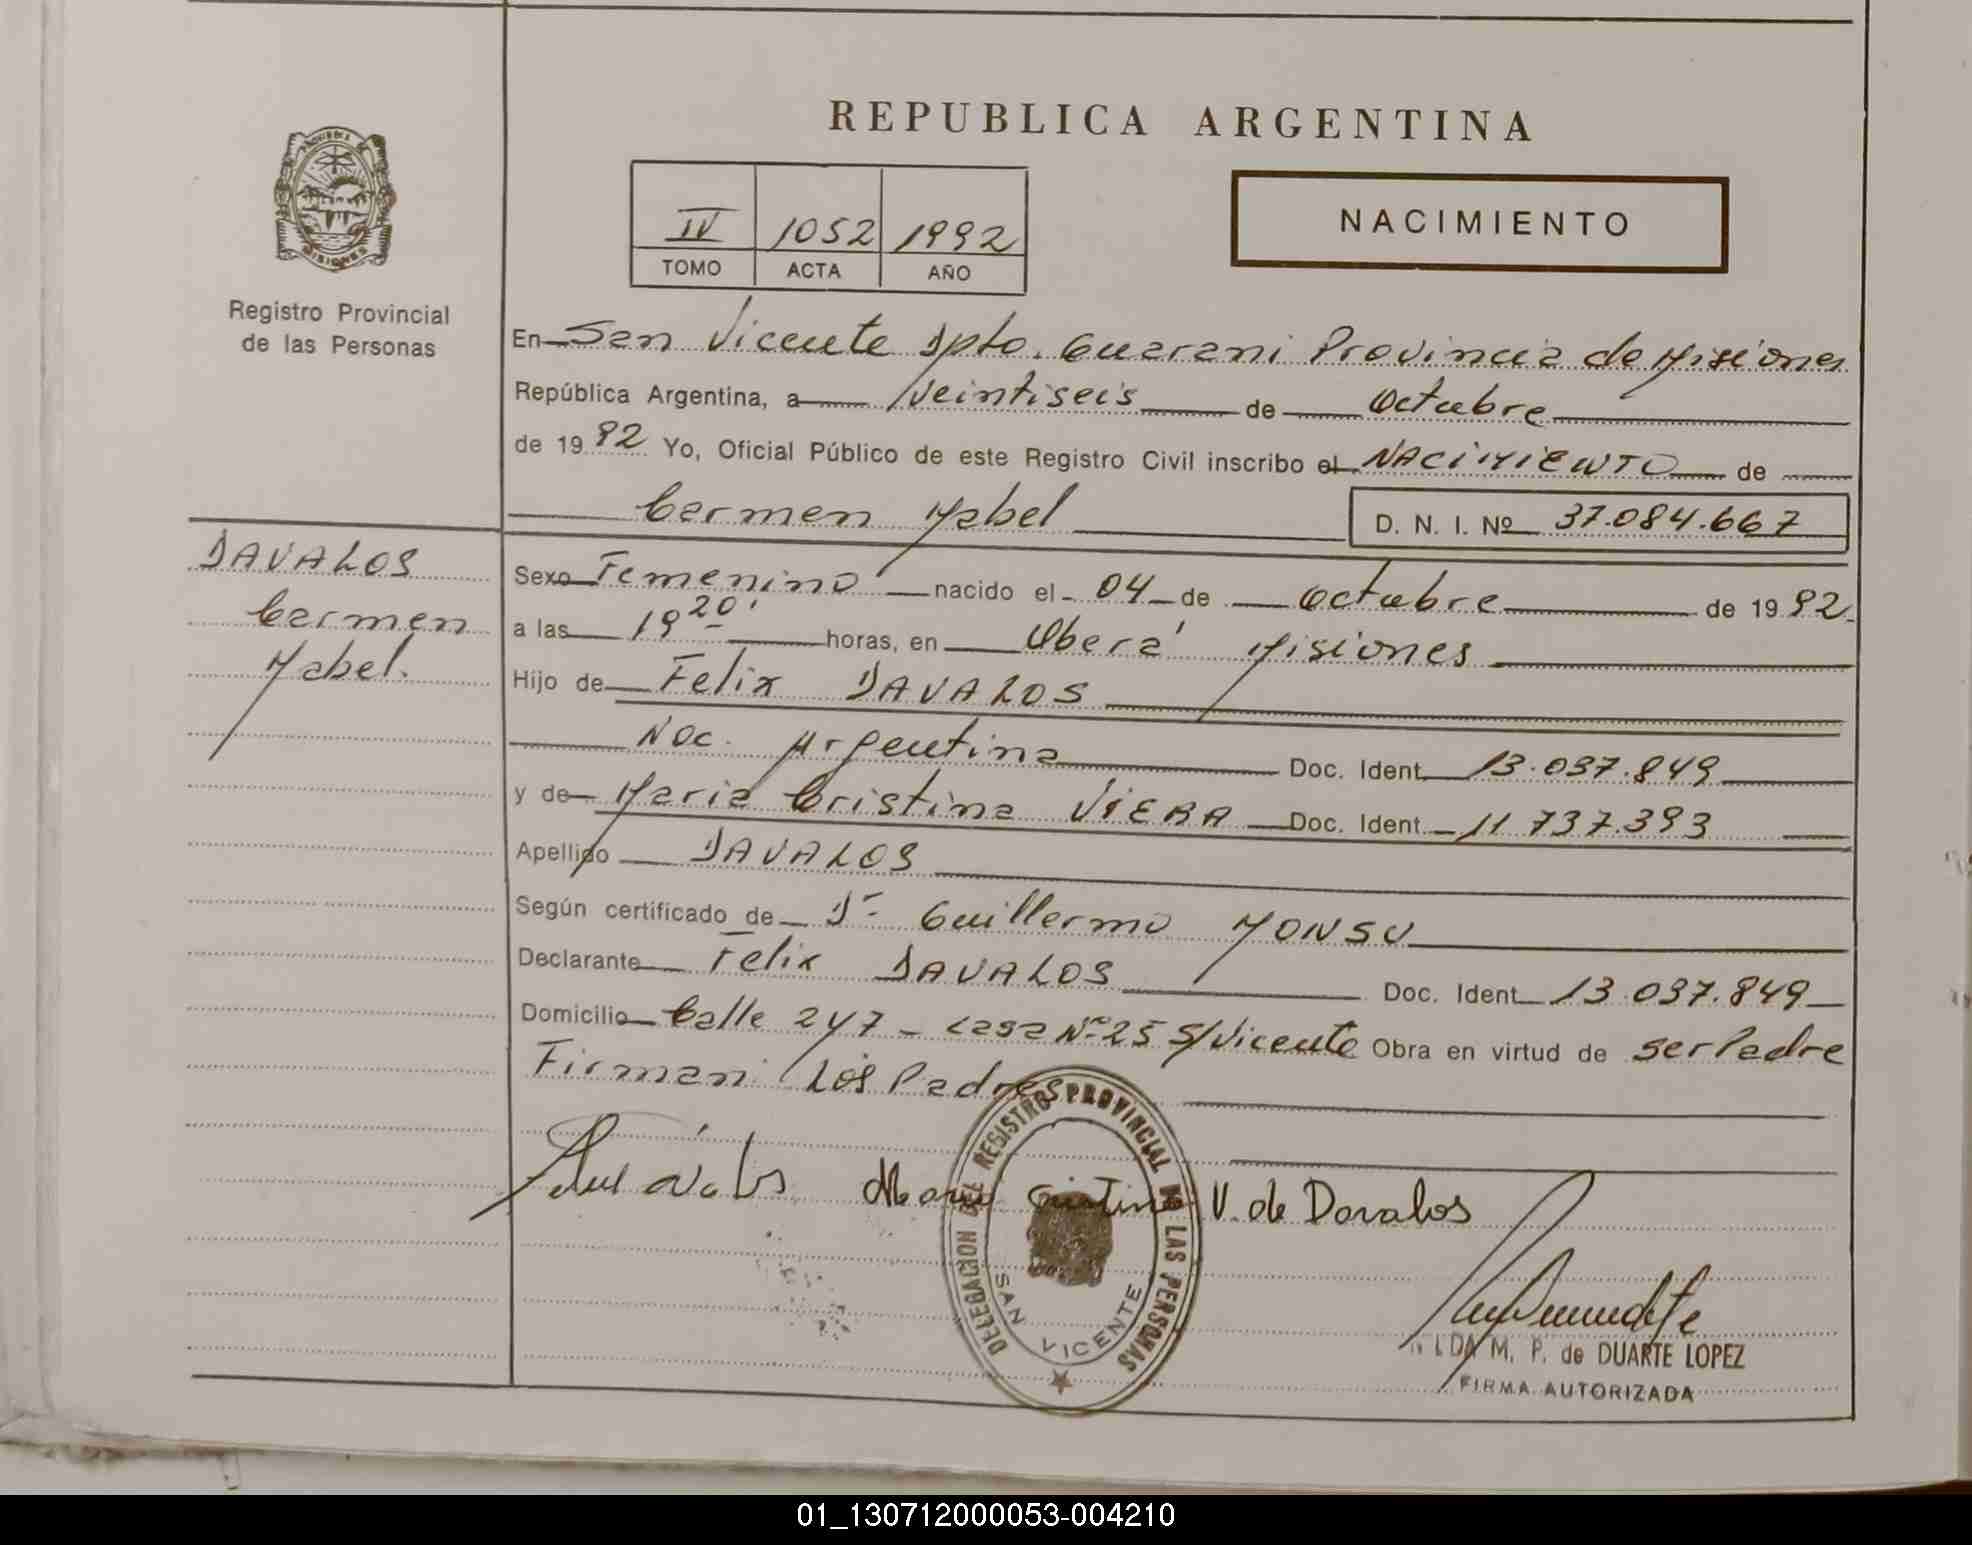 REPUBLICA ARGENTINA
PROVINCIA DE MISIONES
Registro Provincial
de las Personas
IV 1052 1992
TOMO ACTA AÑO
NACIMIENTO
En San Vicente Dpto. Guarani Provincia de Misiones
República Argentina, a Veintiseis de Octubre
de 1992 Yo, Oficial Público de este Registro Civil inscribo el NACIMIENTO de
Carmen Mabel D. N. I. Nº 37.084.667
DAVALOS
Carmen
Mabel.
Sexo Femenino nacido el 04 de Octubre de 1992
a las 19 20' horas, en Oberá Misiones
Hijo de Felix DAVALOS
Nac. Argentina Doc. Ident. 13.037.849
y de Maria Cristina VIERA Doc. Ident. 11.737.393
Apellido DAVALOS
Según certificado de Dr. Guillermo MONSU
Declarante Felix DAVALOS Doc. Ident. 13.037.849
Domicilio Calle 247 - casa Nº 25 S/Vicente Obra en virtud de ser Padre
Firman Los Padres
Maria Cristina V. de Davalos
DELEGACION DEL REGISTRO PROVINCIAL DE LAS PERSONAS
SAN VICENTE
M. P. de DUARTE LOPEZ
FIRMA AUTORIZADA
01_130712000053-004210